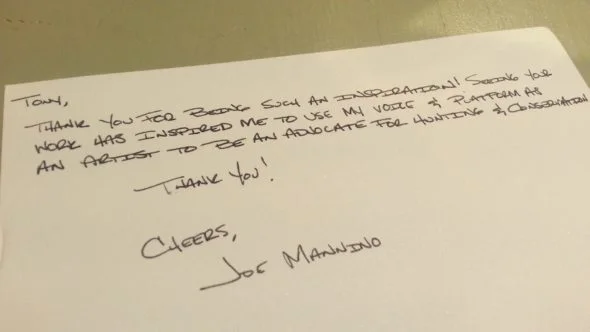 TONY,
THANK YOU FOR BEING SUCH AN INSPIRATION! SEEING YOUR
WORK HAS INSPIRED ME TO USE MY VOICE & PLATFORM AS
AN ARTIST TO BE AN ADVOCATE FOR HUNTING & CONSERVATION
THANK YOU!
CHEERS,
JOE MANNINO